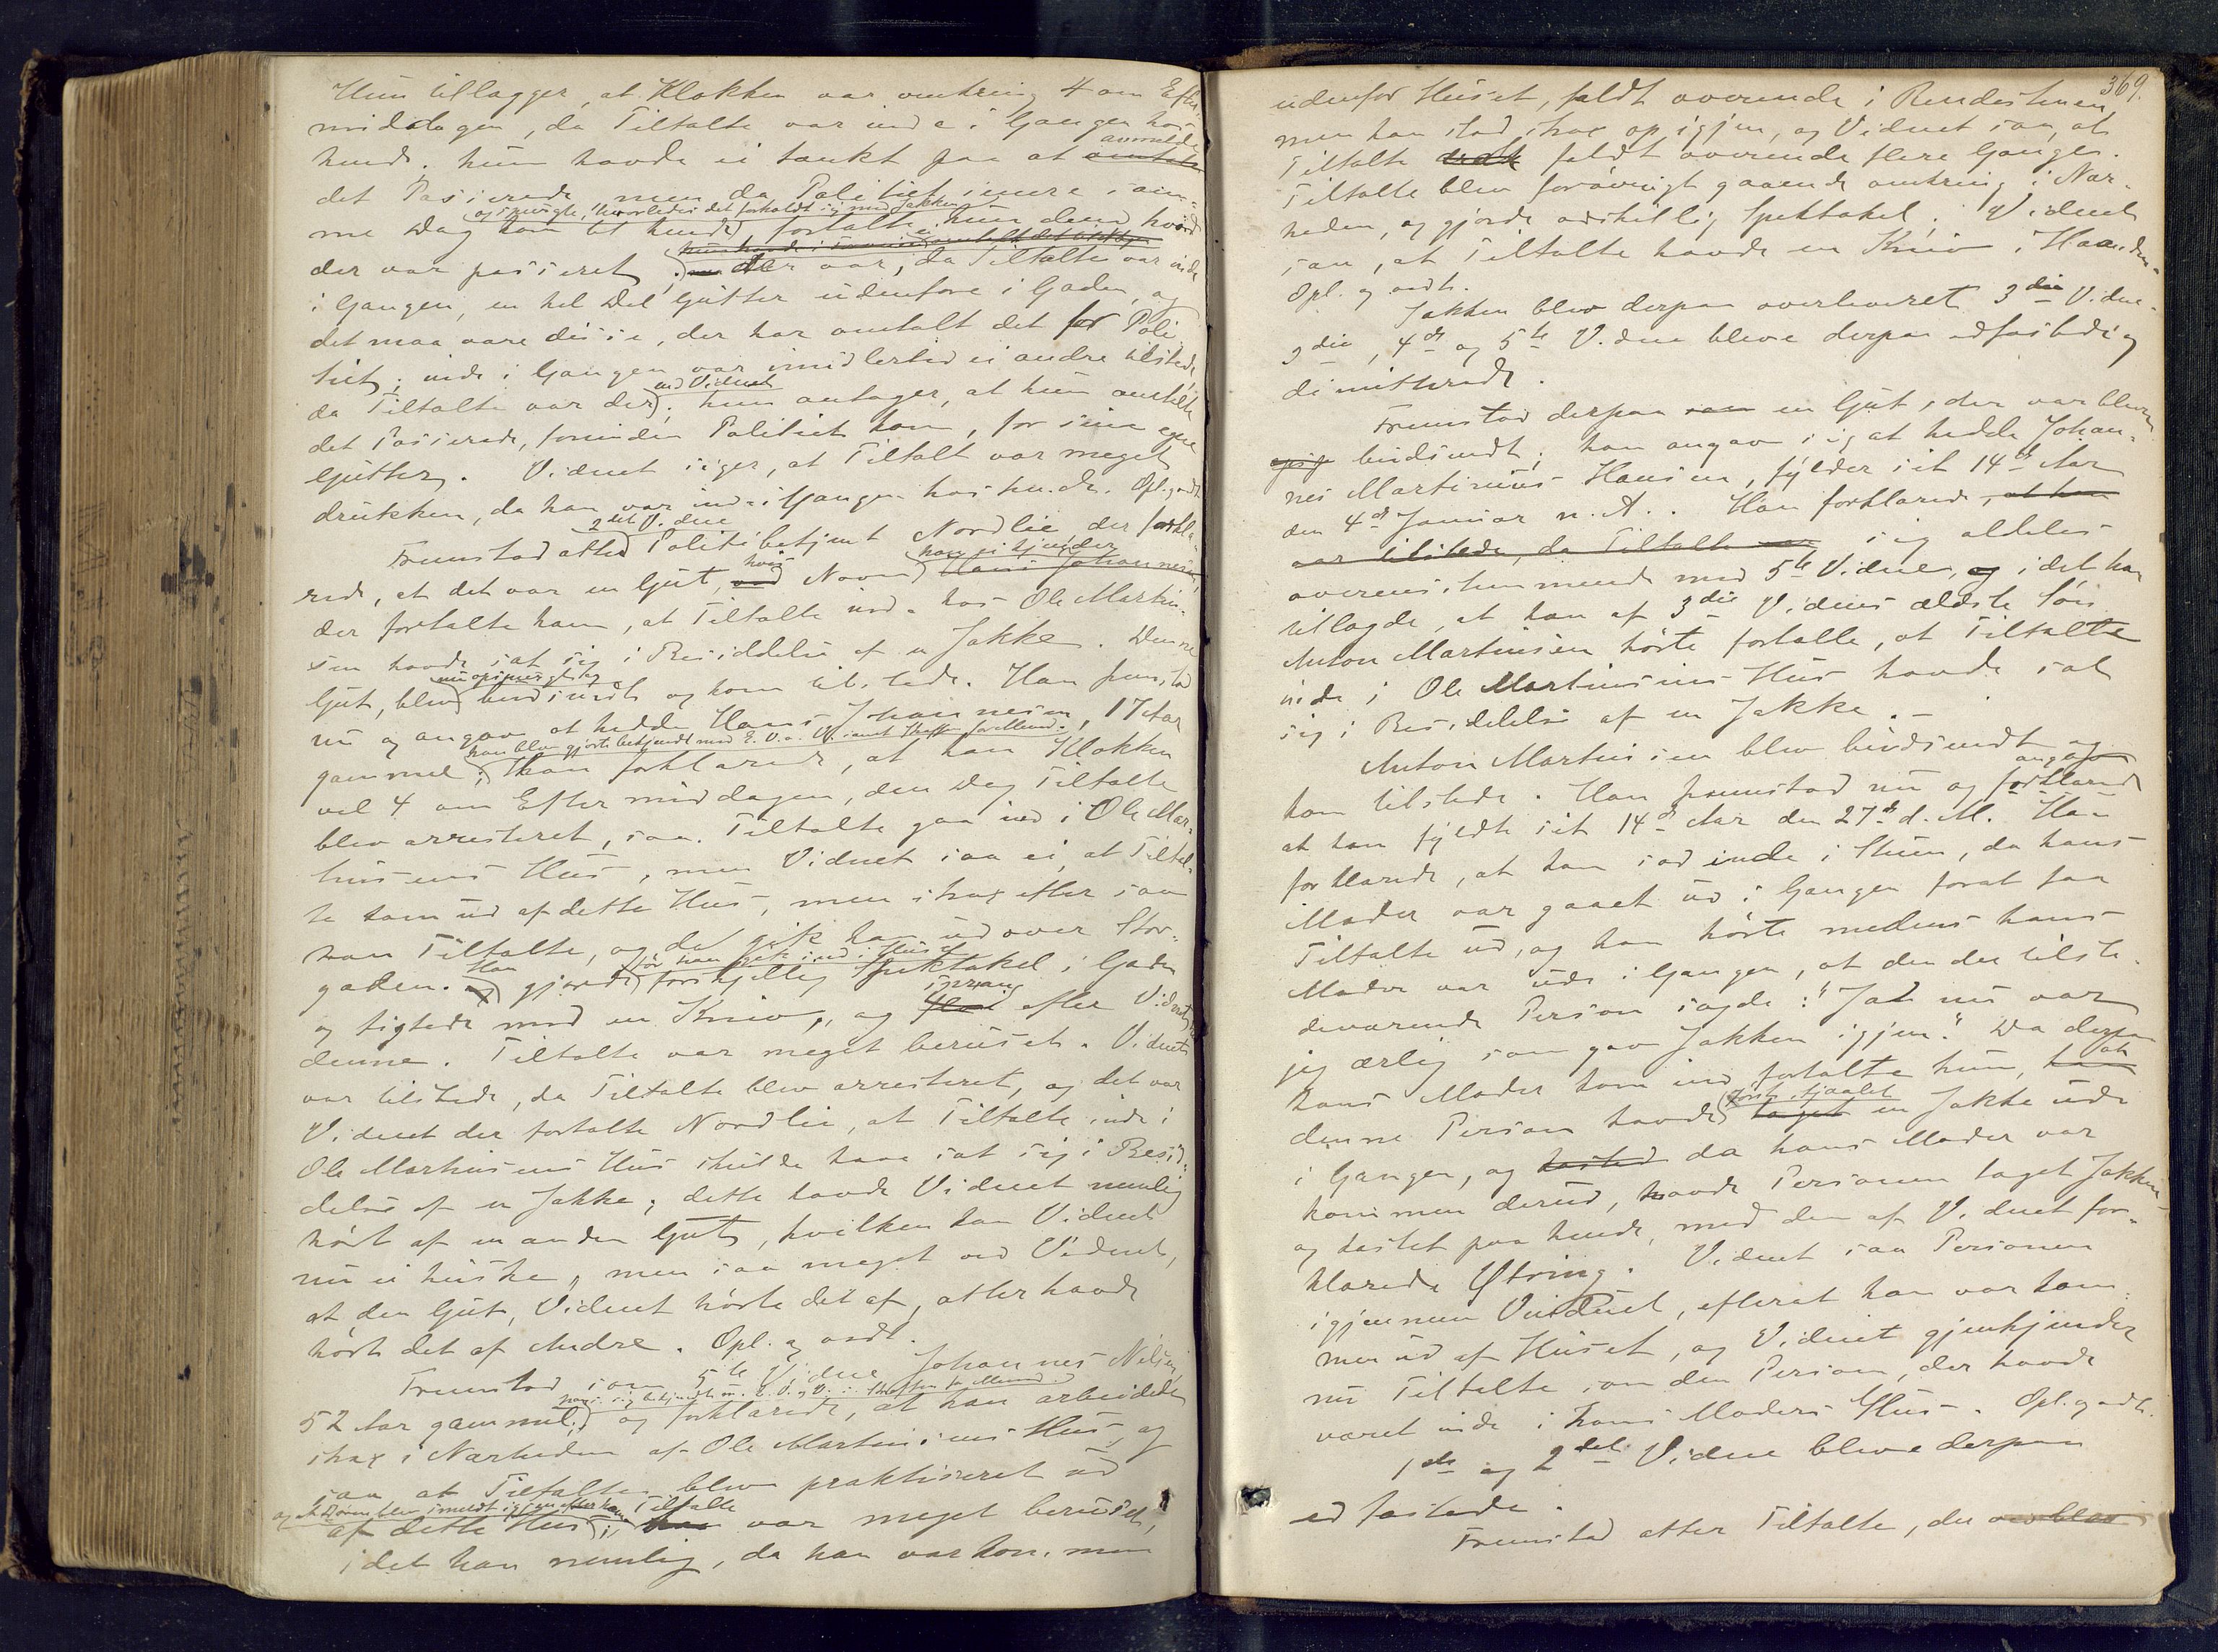 Hun tillægger, at Klokken var omkring 4 om Efter-
middagen, da Tiltalte var inde i Gangen hos
hende. hun havde ei tænkt paa at omtale anmelde
det Passerede, men da Politiet senere sam-
me Dag kom til hende og spurgte, hvorledes det forholdt sig med Jakken, fortalte hun dem hvad
der var passeret; der var, da Tiltalte var inde
i Gangen, en hel Del Gutter udenfore i Gaden, og
det maa være disse, der har omtalt det for Poli-
tiet; inde i Gangen var imidlertid ei andre tilstede
da Tiltalte var der, end Vidnet; hun antager, at hun omtalte
det Passerede, forinden Politiet kom, for sine egne
Gutter. Vidnet siger, at Tiltalte var meget
drukken, da han var inde i Gangen hos hende. Opl. og vedt.
Fremstod atter 2det Vidne Politibetjent Nordlie der forkla-
rede, at det var en Gut, ved hvis Navn han ei kjender Hans Johannesen,
der fortalte ham, at Tiltalte inde hos Ole Martin-
sen havde sat sig i Besiddelse af en Jakke. Denne
Gut, blev nu opspurgt og budsendt og kom tilstede. Han fremstod
nu og angav at hedde Hans Johannesen, 17 Aar
gammel; han blev gjort bekjendt med E. V. o. V. samt Straffen for Mened. Han forklarede, at han Klokken
vel 4 om Eftermiddagen, den Dag Tiltalte
blev arresteret, saa Tiltalte gaa ind i Ole Mar-
tinsens Hus, men Vidnet saa ei, at Tiltal-
te kom ud af dette Hus, men strax efter saa
han Tiltalte, og da gik han ud over Stor-
gaden. og Han gjorde, før han gik ind i Huset forskjellig Spektakel i Gaden
og sigtede med en Kniv, og sprang efter Vidnet med
denne. Tiltalte var meget beruset. Vidnet
var tilstede, da Tiltalte blev arresteret, og det var
Vidnet der fortalte Nordlie, at Tiltalte inde i
Ole Martinsens Hus skulde have sat sig i Besid-
delse af en Jakke; dette havde Vidnet nemlig
hørt af en anden Gut, hvilken kan Vidnet
nu ei huske, men saa meget ved Vidnet,
at den Gut, Vidnet hørte det af, atter havde
hørt det af Andre. Opl. og vedt.
Fremstod som 5te Vidne Johannes Nilsen
52 Aar gammel; han er bekjendt m. E. V. og V. s. Straffen for Mened. og forklarede, at han arbeidede
strax i Nærheden af Ole Martinsens Hus, og
saa at Tiltalte blev praktiseret ud
af dette Hus og at Døren blev smeldt igjen efter ham; han Tiltalte var meget beruset,
idet han nemlig, da han var kommen
369.
udenfor Huset, faldt overende i Rendestenen
men han stod strax op igjen, og Vidnet saa, at
Tiltalte faldt overende flere Gange.
Tiltalte blev forøvrigt gaaende omkring i Nær-
heden, og gjorde adskillig Spektakel; Vidnet
saa, at Tiltalte havde en Kniv i Haanden.
Opl. og vedt.
Jakken blev derpaa overleveret 3die Vidne.
3die, 4de og 5te Vidne bleve derpaa edfæstede og
dimitterede.
Fremstod derpaa som en Gut, der var bleven
budsendt; han angav sig at hedde Johan-
nes Martinius Hansen, fylder sit 14de Aar
den 4de Januar n. A.. Han forklarede, at han
var tilstede, da Tiltalte sig aldeles
overensstemmende med 5te Vidne, og idet han
tillagde, at han af 3die Vidnes ældste Søn
Anton Martinsen hørte fortalle, at Tiltalte
inde i Ole Martinsens Hus havde sat
sig i Besiddelse af en Jakke.
Anton Martinsen blev budsendt og
kom tilstede. Han fremstod nu og forklarede angav
at han fyldte sit 14de Aar den 27de d. M. Han
forklarede, at han sad inde i Stuen, da hans
Moder var gaaet ud i Gangen forat faa
Tiltalte ud, og han hørte medens hans
Moder var ude i Gangen, at den der tilste-
deværende Person sagde: "Jad nu var
jeg ærlig som gav Jakken igjen." Da derpaa
hans Moder kom ind fortalte hun, han at
denne Person havde taget først stjaalet en Jakke ude
i Gangen, og kastet da hans Moder var
kommen derud, havde Personen taget Jakken
og kastet paa hende, med den af Vidnet for-
klarede Ytring. Vidnet saa Personen
igjennem Vinduet, efterat han var kom-
men ud af Huset, og Vidnet gjenkjender
nu Tiltalte som den Person, der havde
været inde i hans Moders Hus. Opl. og vedt.
1ste og 2det Vidne bleve derpaa
edfæstede.
Fremstod atter Tiltalte, der ved blev